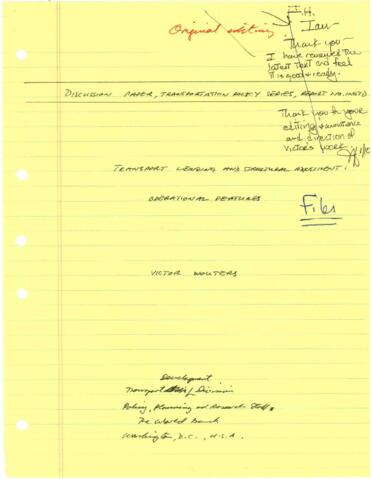 Original editing
I.H.
Ian -
Thank you -
I have reviewed the
latest text and feel
it is good & ready.
DISCUSSION PAPER, TRANSPORTATION POLICY SERIES, REPORT NO.
Thank you for your
editing & assistance
and direction of
Victor's work.
TRANSPORT LENDING AND STRUCTURAL ADJUSTMENT:
OPERATIONAL FEATURES
Files
VICTOR WOUTERS
Development
Transport Division
Policy, Planning and Research Staff,
The World Bank
Washington, D.C., U.S.A.